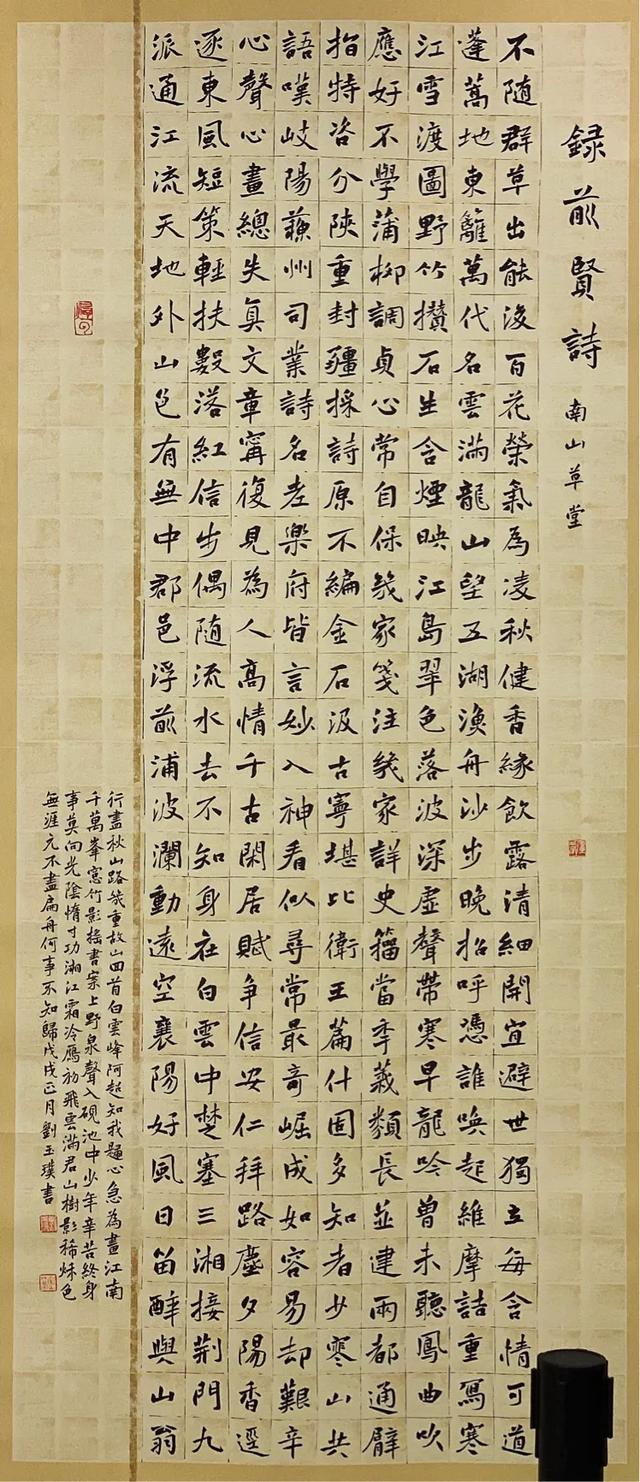 録前賢詩 南山草堂
不随群草出能後百花榮氣為凌秋健香緣飲露清細開宜避世獨立每含情可道
蓬蒿地東籬萬代名雲滿龍山望五湖漁舟沙步晚招呼憑誰喚起維摩詰重寫寒
江雪渡圖野竹攢石生含煙映江島翠色落波深虛聲帶寒早龍吟曾未聽鳳曲吹
應好不學蒲柳調貞心常自保幾家箋注幾家詳史籀當年義類長並建兩都通臂
指特咨分陝重封疆採詩原不編金石汲古寧堪比衛王篇什固多知者少寒山共
語嘆岐陽蘇州司業詩名老樂府皆言妙入神看似尋常最奇崛成如容易却艱辛
心聲心畫總失真文章寧復見為人高情千古閑居賦爭信安仁拜路塵夕陽香逕
逐東風短策輕扶數落紅信步偶隨流水去不知身在白雲中楚塞三湘接荆門九
派通江流天地外山色有無中郡邑浮前浦波瀾動遠空襄陽好風日留醉與山翁
行盡秋山路幾重故山回首白雲峰阿超知我歸心急為畫江南
千萬峯窓竹影搖書案上野泉聲入硯池中少年辛苦終身
事莫向光陰惰寸功湘江霜冷鴈初飛雲滿君山樹影稀秋色
無涯元不盡扁舟何事不知歸戊戌正月劉玉璞書